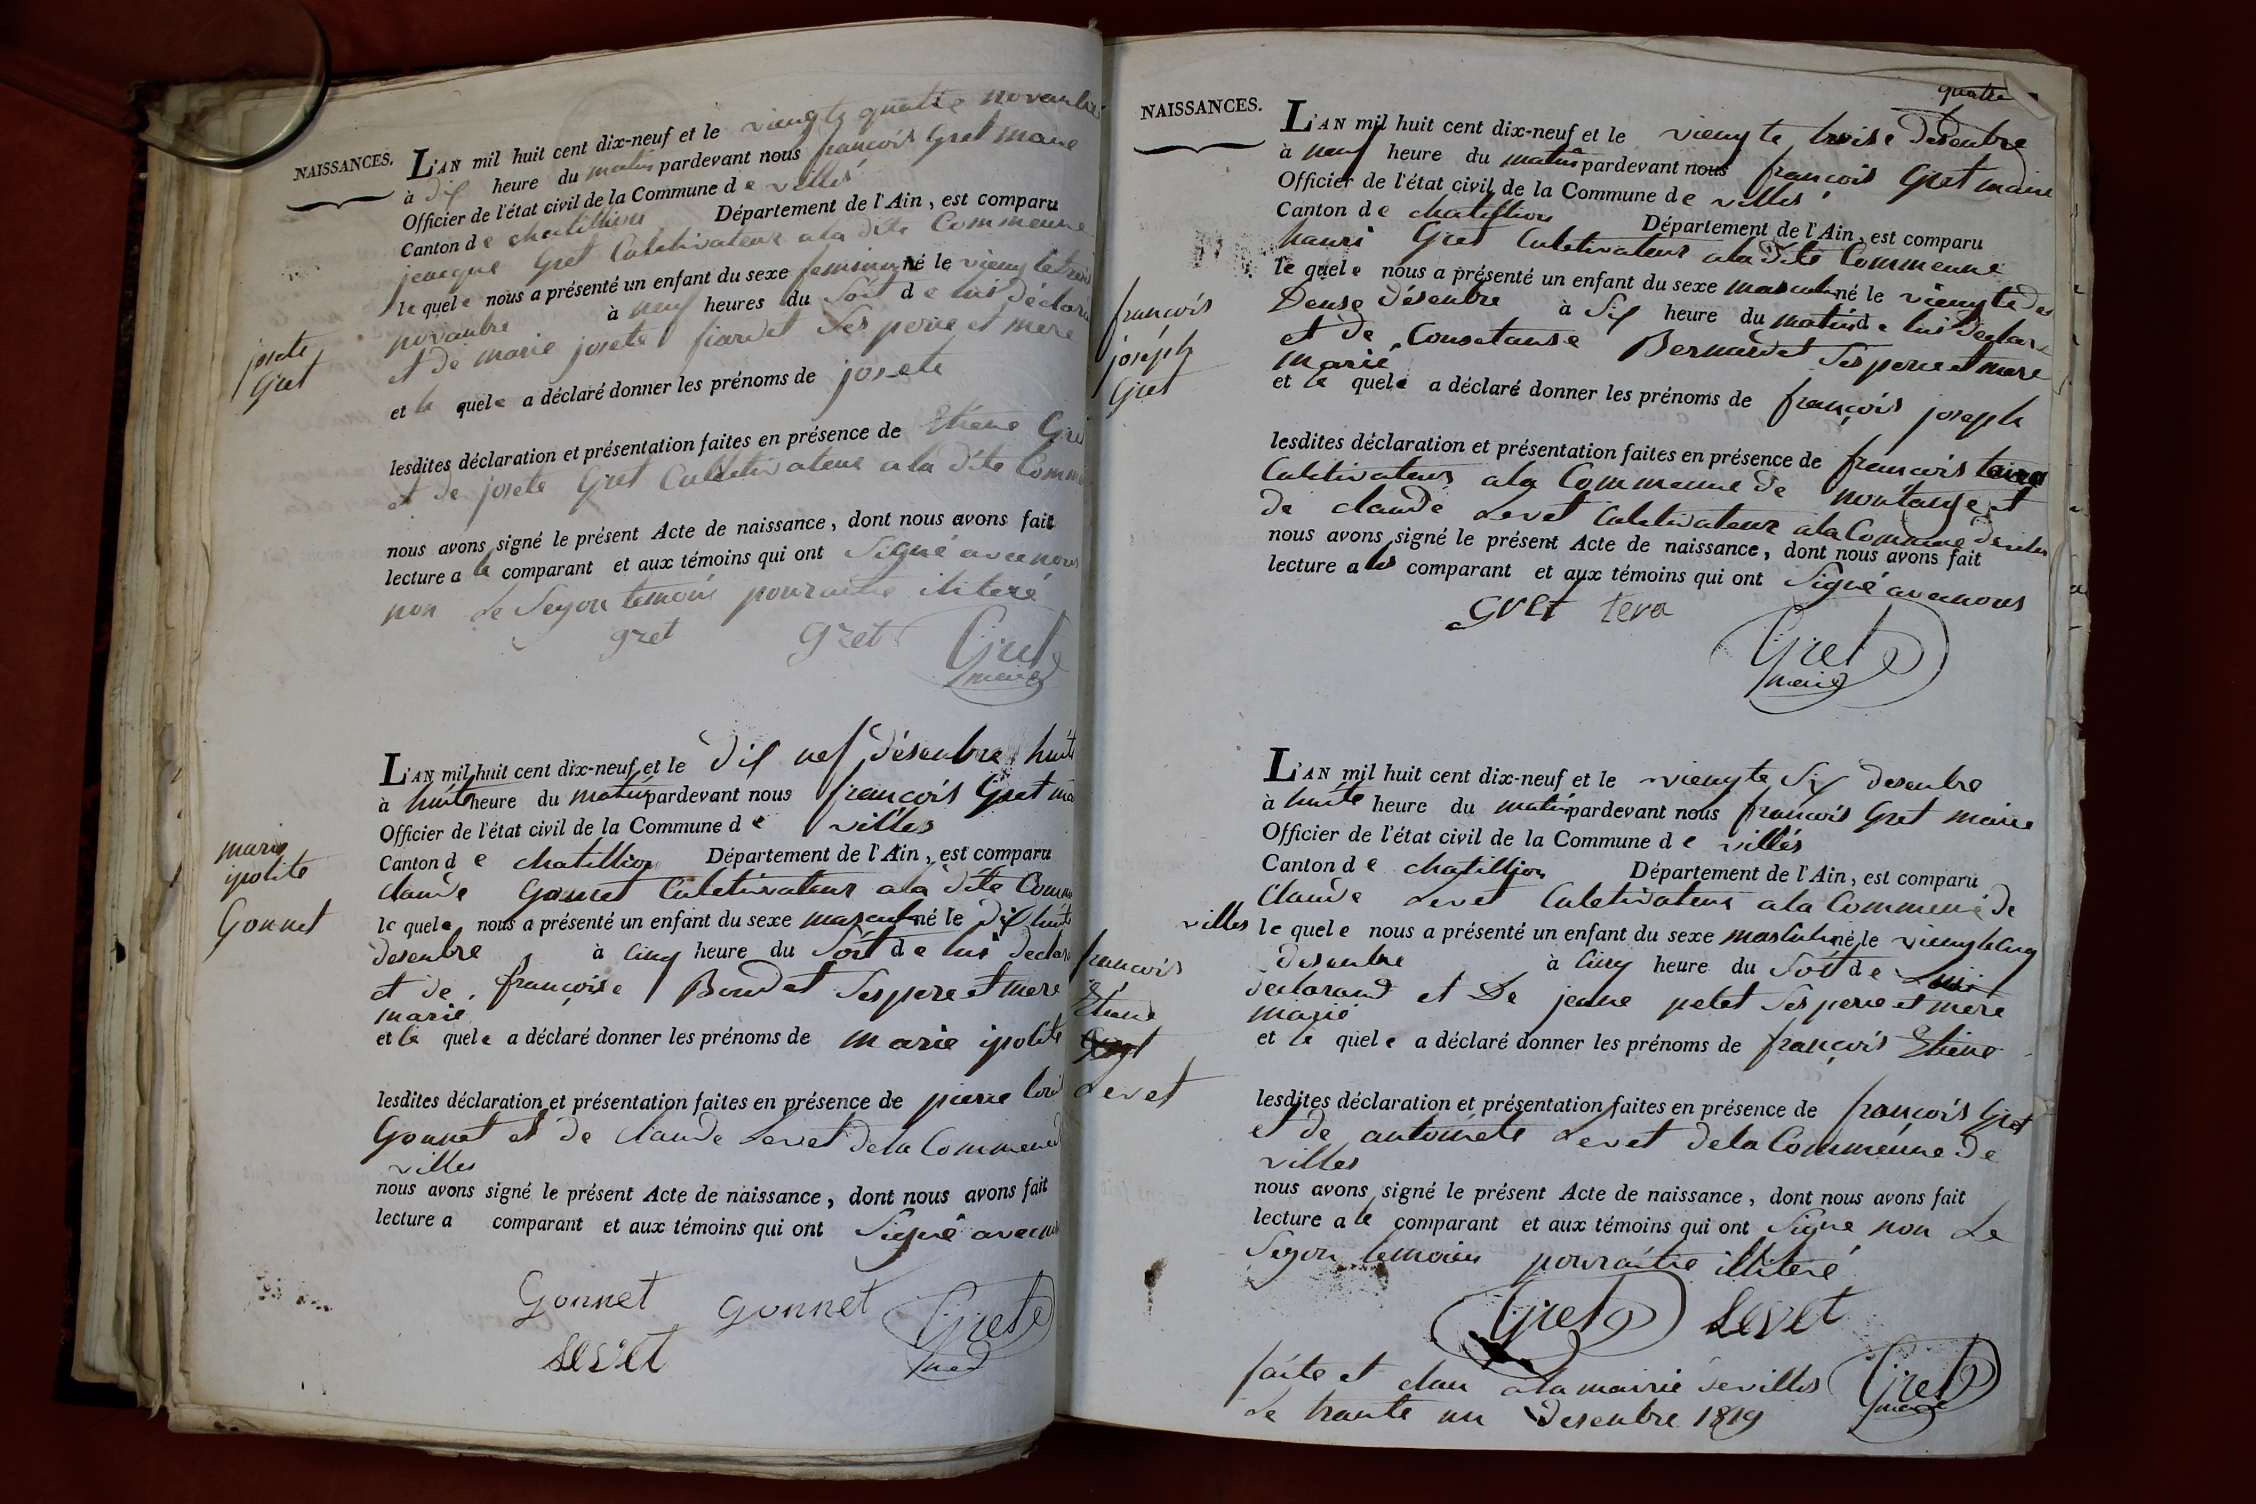 NAISSANCES.
L'AN mil huit cent dix-neuf et le viengte quatre novanbre
à dix heure du matin pardevant nous francois Gret maire
Officier de l'état civil de la Commune de villes
Canton de chatillion Département de l'Ain, est comparu
jeacque Gret Cultivateur a la dite Commeune
le quele nous a présenté un enfant du sexe feminin né le viengte trois
novanbre à neuf heures du Soit de lui déclara
et de marie josete fiardet Ses perre et mere
josete
Gret
et le quele a déclaré donner les prénoms de josete
lesdites déclaration et présentation faites en présence de Etiene Gret
et de josete Gret Cultivateur a la dite Comm
nous avons signé le présent Acte de naissance, dont nous avons fait
lecture a le comparant et aux témoins qui ont Signé avec nous
non Le Segon temoins pouraitre iliteré
gret gret Gret
maire
L'AN mil huit cent dix-neuf et le dix nef désenbre huit
à huite heure du matin pardevant nous francois Gret ma
Officier de l'état civil de la Commune de villes
Canton de chatillion Département de l'Ain, est comparu
claude Gonnet Cultivateur a la dite Comm
le quele nous a présenté un enfant du sexe masculin né le dix huite
desenbre à cinq heure du Soit de lui declara
et de francoise Boudet Ses pere et mere
marié
marie
ipolite
Gonnet
et le quele a déclaré donner les prénoms de marie ipolite
lesdites déclaration et présentation faites en présence de pierre loui
Gonnet et de Claude Levet de la Commene d
villes
nous avons signé le présent Acte de naissance, dont nous avons fait
lecture a comparant et aux témoins qui ont Signé avec nous
Gonnet gonnet Gret
Levet maire
quatre
NAISSANCES.
L'AN mil huit cent dix-neuf et le viengte troise desenbre
à neuf heure du matin pardevant nous francois Gret maire
Officier de l'état civil de la Commune de villes
Canton de chatillion Département de l'Ain, est comparu
hanri Gret Cultivateur a la dite Commeune
le quele nous a présenté un enfant du sexe masculin né le viengte des
Deuse désenbre à Six heure du matin de lui declara
et de Constanse Bernardet Ses perre et mere
marié
francois
joseph
Gret
et le quele a déclaré donner les prénoms de françois joseph
lesdites déclaration et présentation faites en présence de francois tairra
Cultivateur a la Commeune de montange et
de claude Levet Cultivateur a la Commune de villes
nous avons signé le présent Acte de naissance, dont nous avons fait
lecture a les comparant et aux témoins qui ont Signé avec nous
gret tera
Gret
maire
L'AN mil huit cent dix-neuf et le viengte Six desenbre
à huite heure du matin pardevant nous francois Gret maire
Officier de l'état civil de la Commune de villés
Canton de chatillion Département de l'Ain, est comparu
Claude Levet Cultivateur a la Commene de
villes le quele nous a présenté un enfant du sexe masculin né le viengte cinq
desenbre à Cinq heure du Soit de Lui
declarand et De jeane petet Ses perre et mere
marié
francois
Etiene
Levet
et le quele a déclaré donner les prénoms de françois Etiene
lesdites déclaration et présentation faites en présence de francois Gret
et de antoinete Levet de la Commeune de
villes
nous avons signé le présent Acte de naissance, dont nous avons fait
lecture a le comparant et aux témoins qui ont Signe non Le
Segon temoins pouraitre illiteré
Gret Levet
faite et clau a la mairie de villes Gret
Le trante un Desenbre 1819 maire